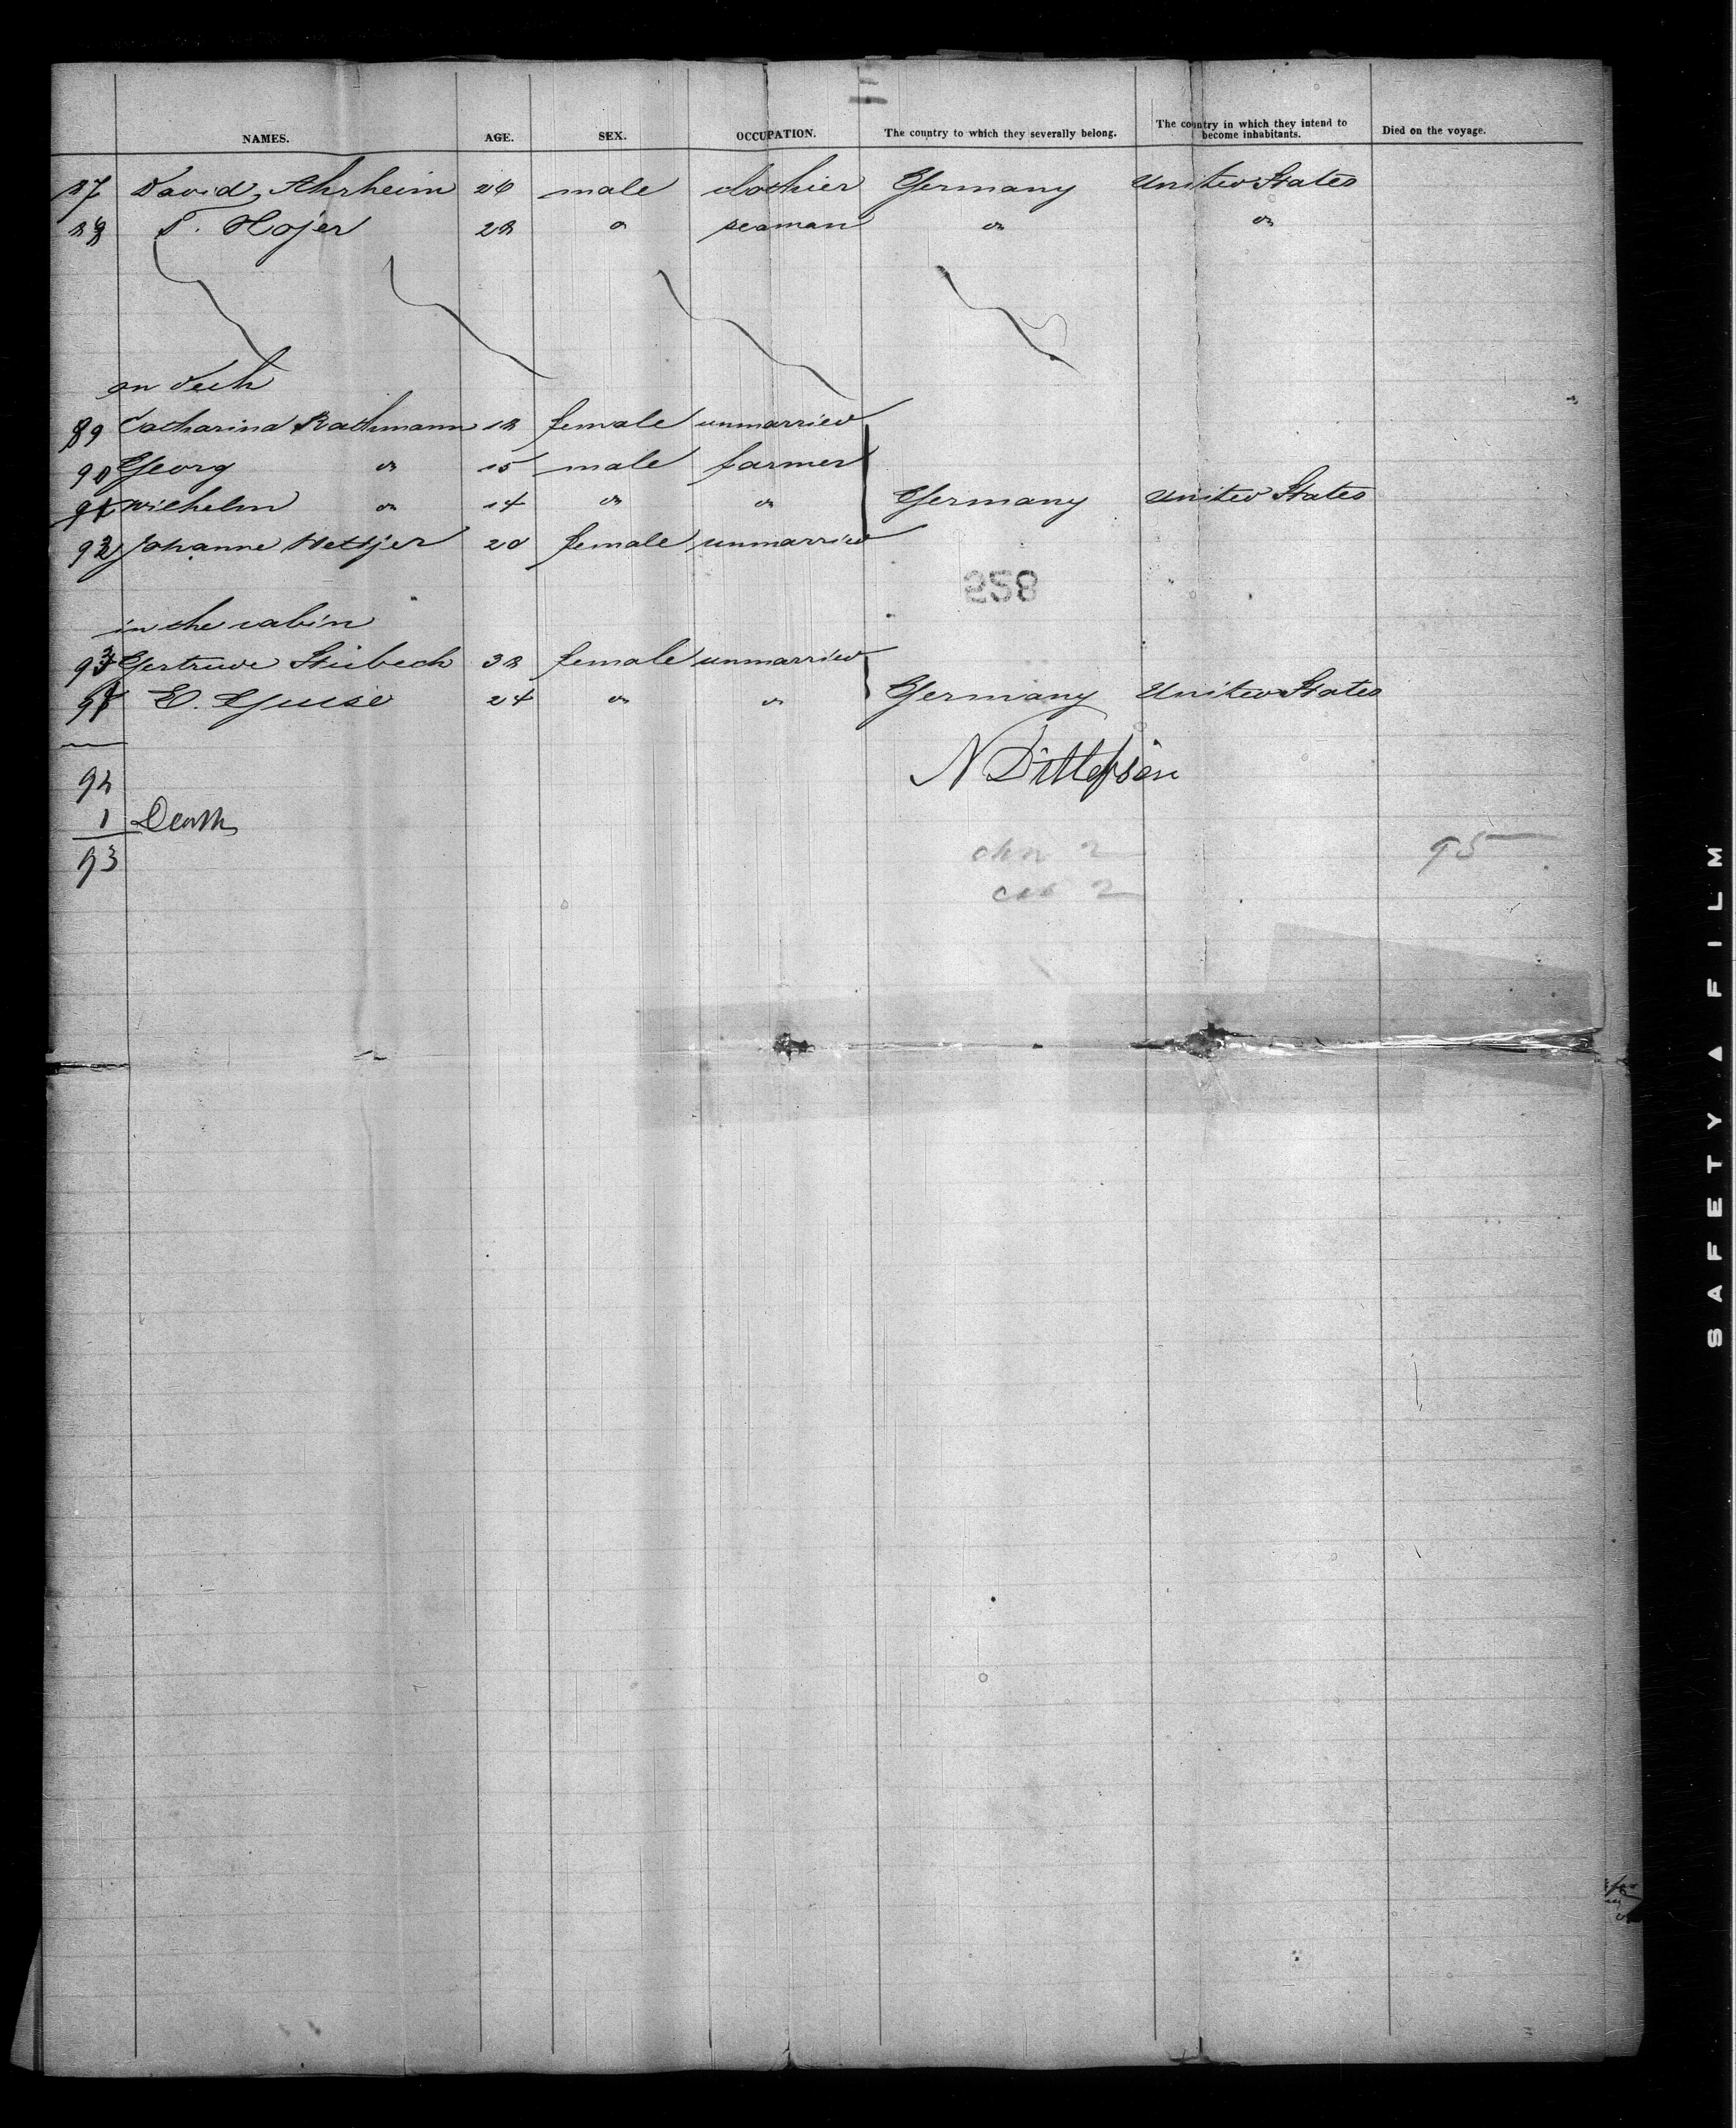 NAMES. AGE. SEX. OCCUPATION. The country to which they severally belong. The country in which they intend to become inhabitants. Died on the voyage.
87 David Ahrheim 26 male clothier Germany United States
88 T. Hojer 28 " seaman " "
on deck
89 Catharina Rathmann 18 female unmarried
90 Georg " 15 male farmer
91 Wilhelm " 14 " " Germany United States
92 Johanne Hettjer 20 female unmarried
858
in the cabin
93 Gertrude Stubech 38 female unmarried
94 E. 24 " " Germany United States
N Dittefsen
92
1 Death
93
2
95
2
SAFETY FILM